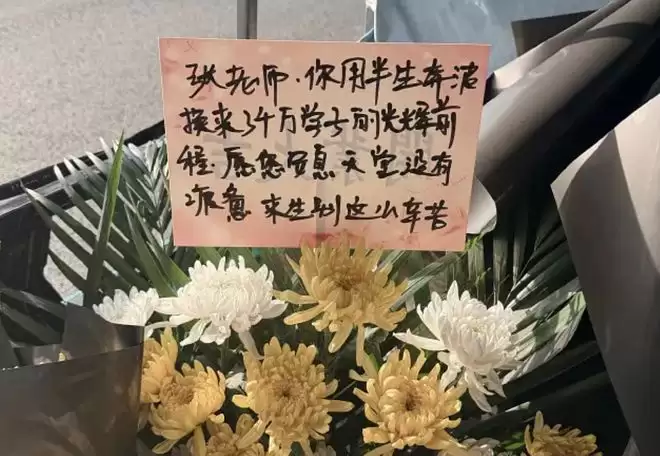 张老师.你用半生奔波
换来了千万学子的光辉前
程.愿您安息天堂没有
疲惫 来生别这么辛苦